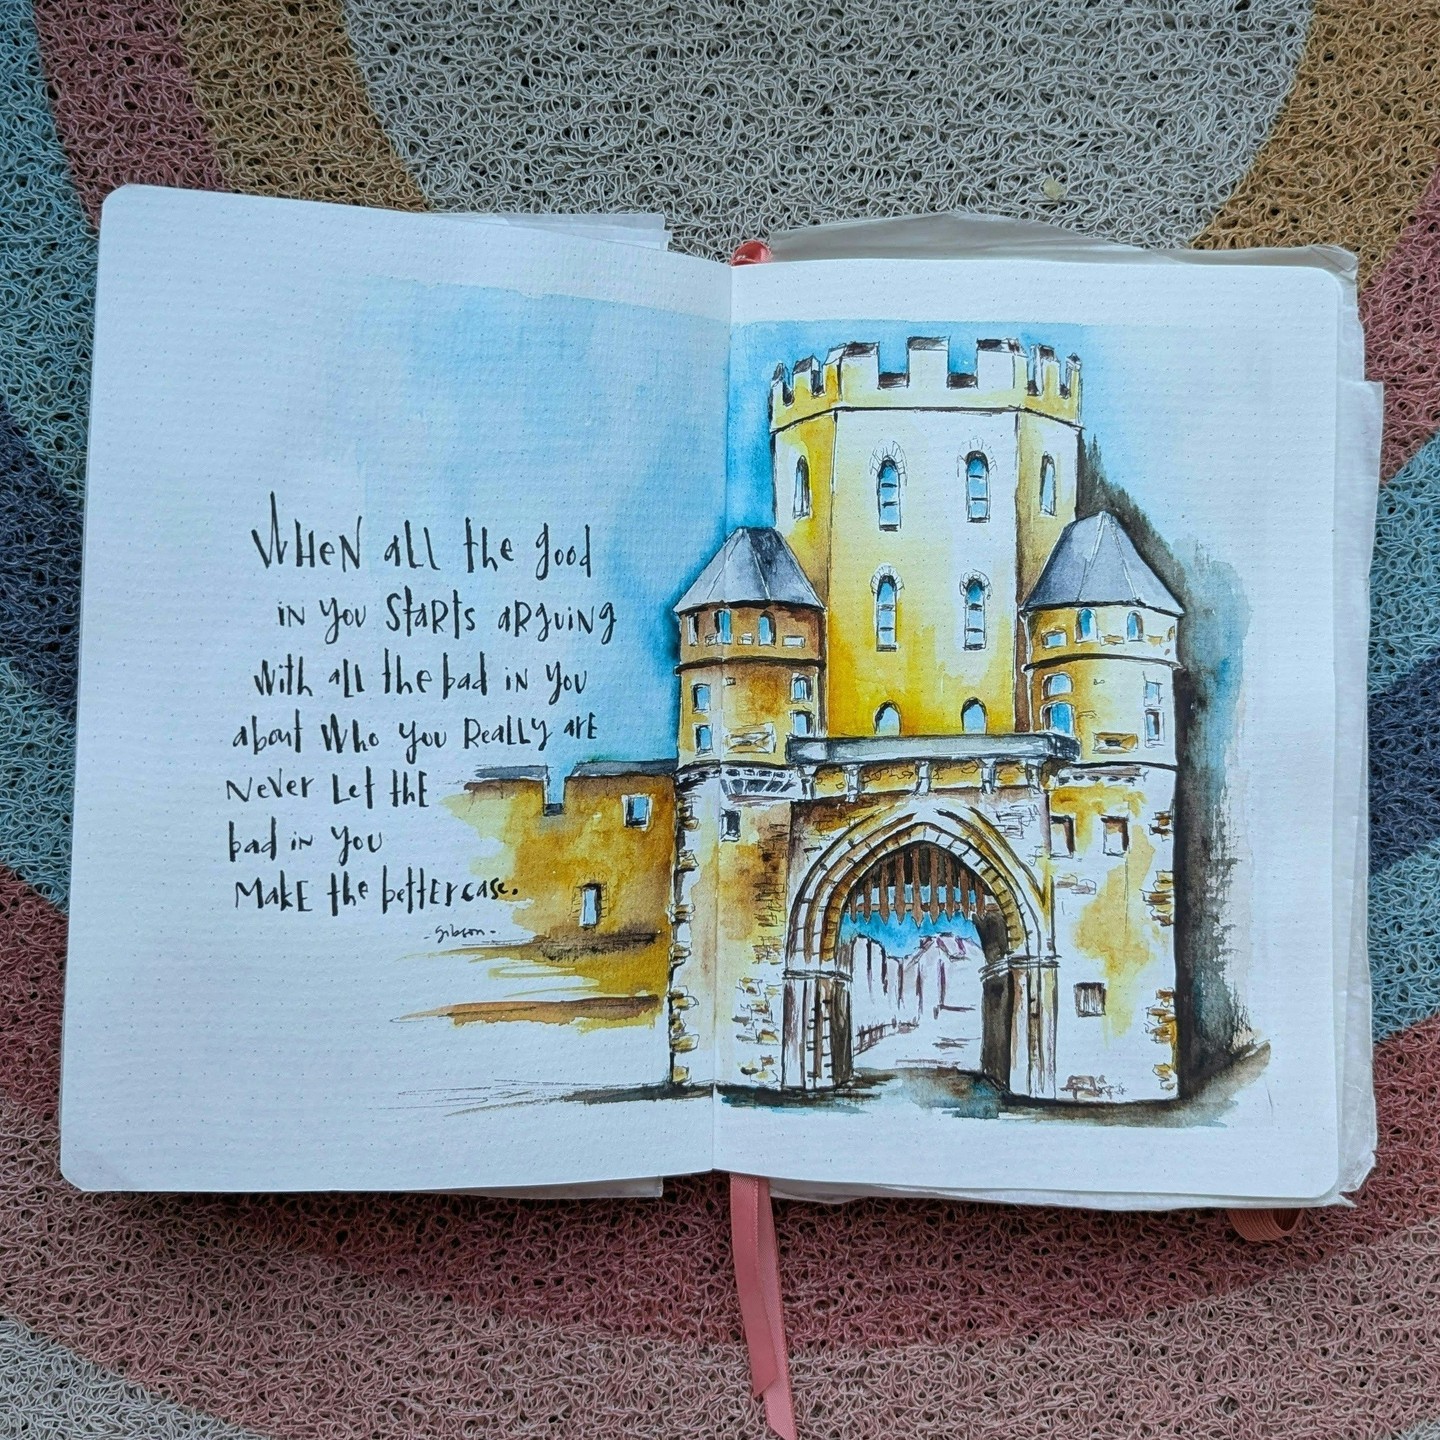 WHeN all the good
in you StaRts aRguing
with all the bad in you
about Who you ReaLLy arE
Never Let thE
bad in you
MakE the bettER case.
- gibson -